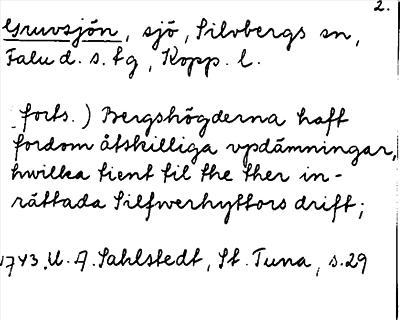 2.
Gruvsjön, sjö, Silvbergs sn,
Falu d. s. fg, Kopp. l.
forts.) Bergshögderna haft
fordom åtskilliga vpdämningar,
hwilka tient til the ther in-
rättada Silfwerhyttors drift;
1743. U. A. Sahlstedt, St. Tuna, s. 29